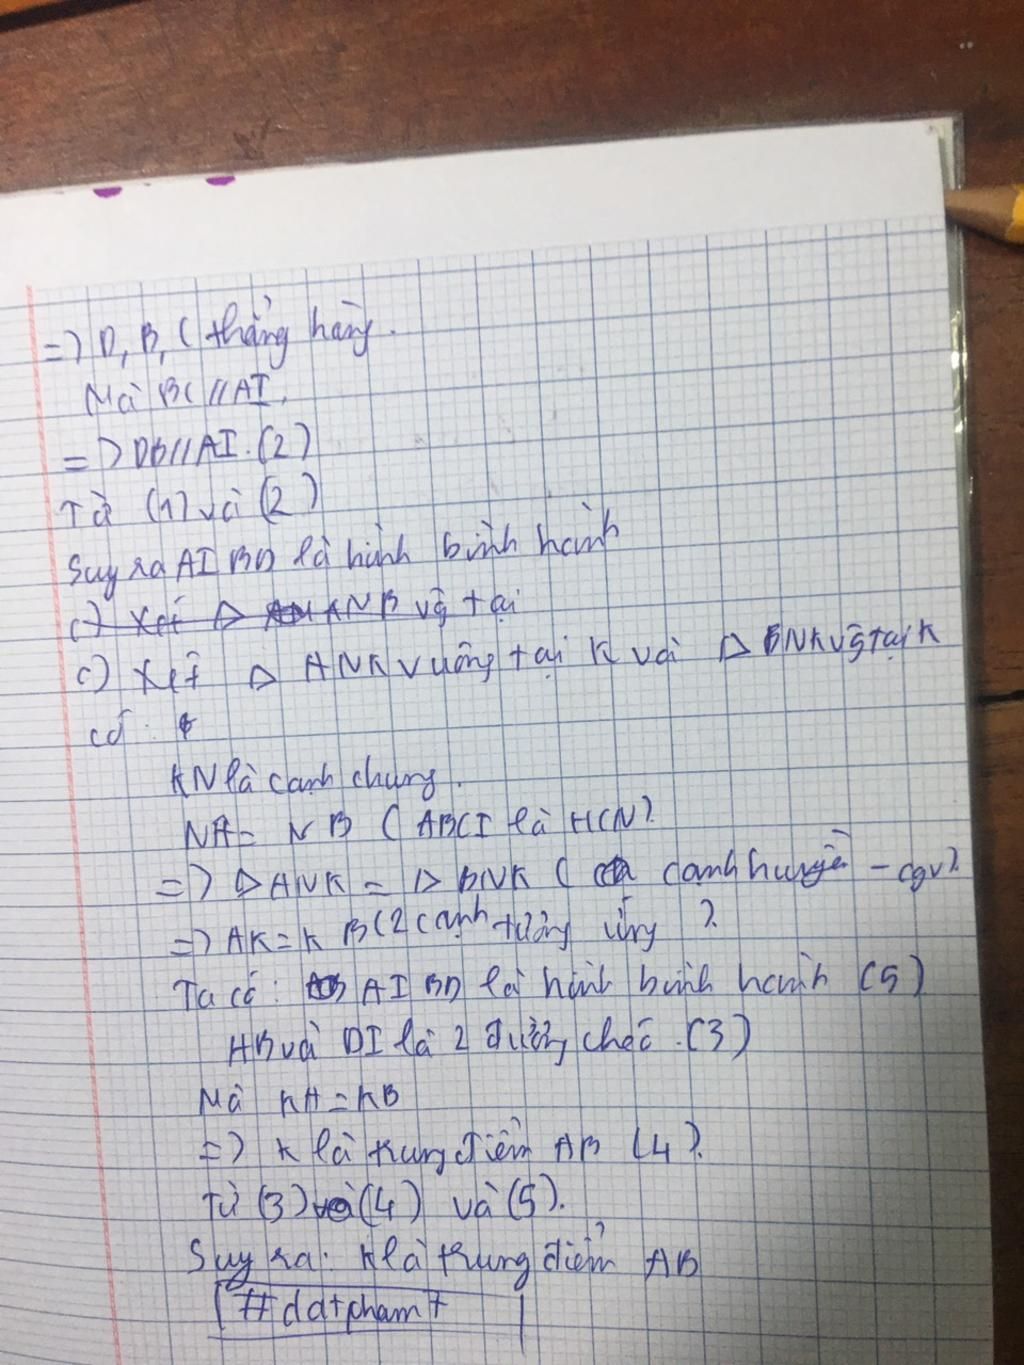 => D, B, C thẳng hàng.
Mà BC // AI.
=> DB // AI. (2)
Từ (1) và (2)
Suy ra AIBD là hình bình hành
c) Xét Δ ANB vg tại
c) Xét Δ ANK vuông tại K và Δ BNK vg tại K
có:
KN là cạnh chung.
NA = NB (ABCI là HCN).
=> Δ ANK = Δ BNK (cạnh huyền - cgv).
=> AK = KB (2 cạnh tương ứng).
Ta có: AIBD là hình bình hành (5)
AB và DI là 2 đường chéo. (3)
Mà KA = KB
=> K là trung điểm AB (4).
Từ (3) (4) và (5).
Suy ra: K là trung điểm AB
#datphamt